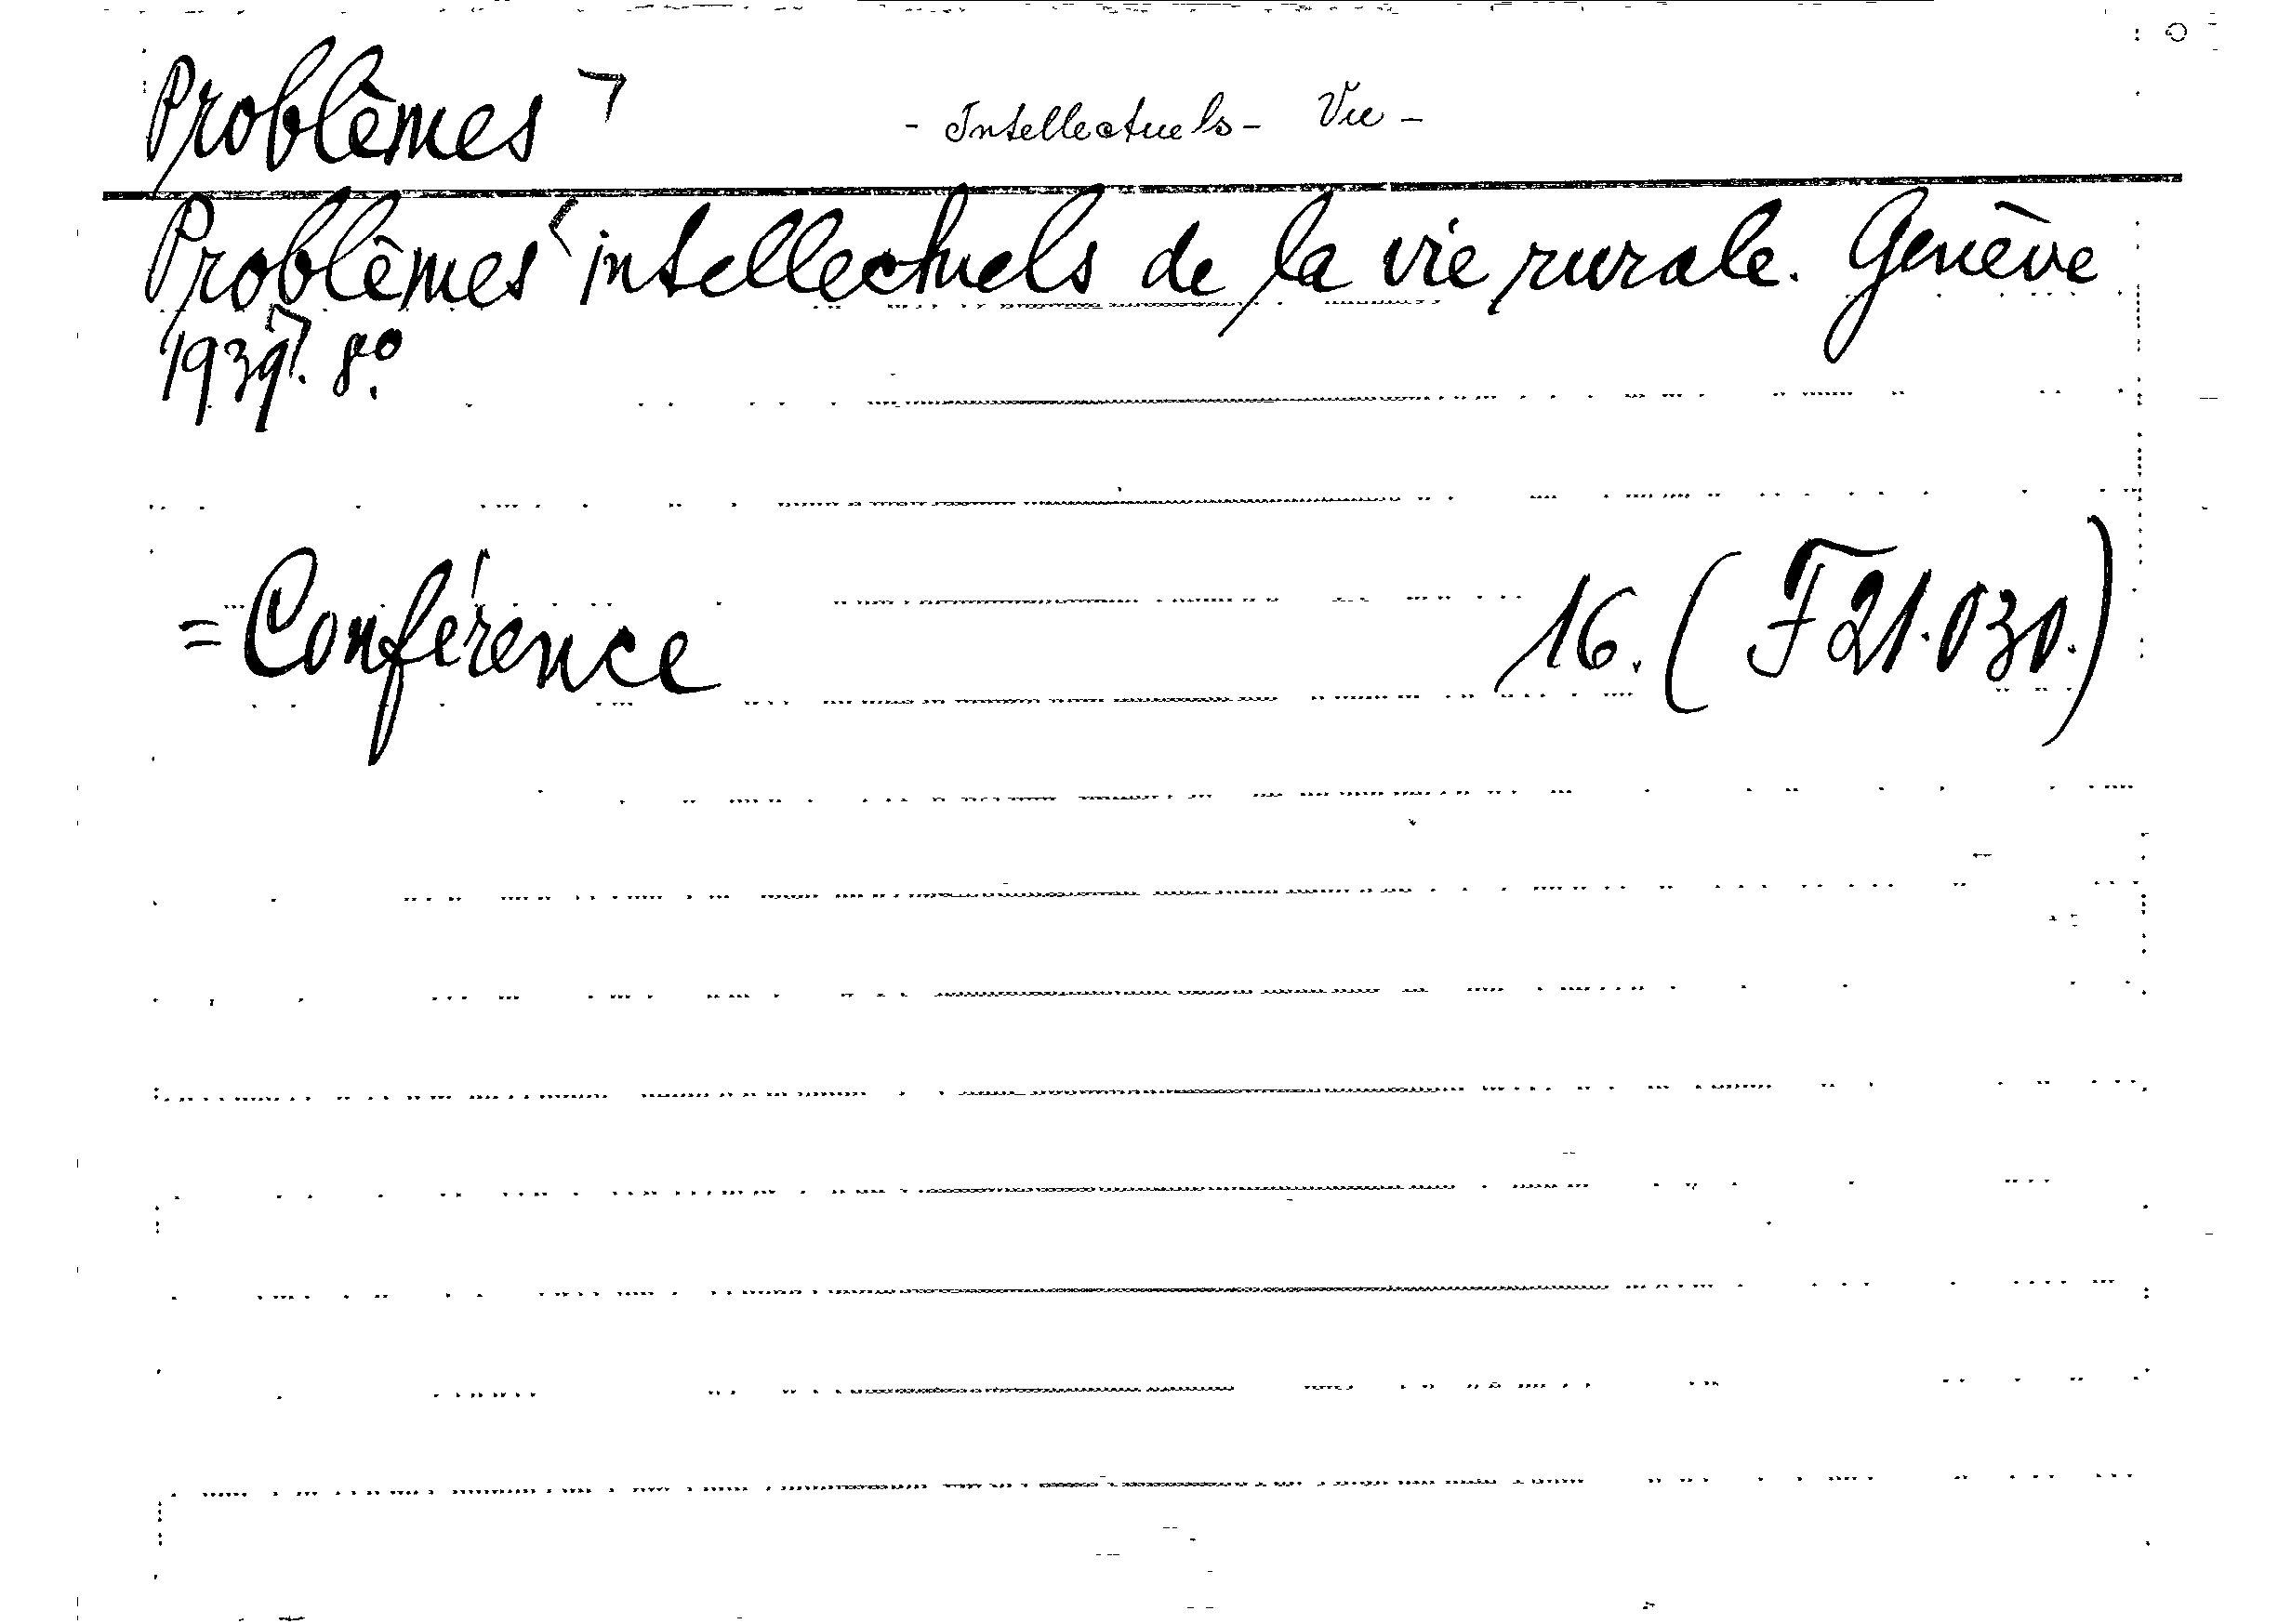 Problêmes ⌝ - Intellectuels - Vie -
Problêmes intellectuels de la vie rurale. Genève
1939. 8º.
= Conférence 16. (F 21.030.)